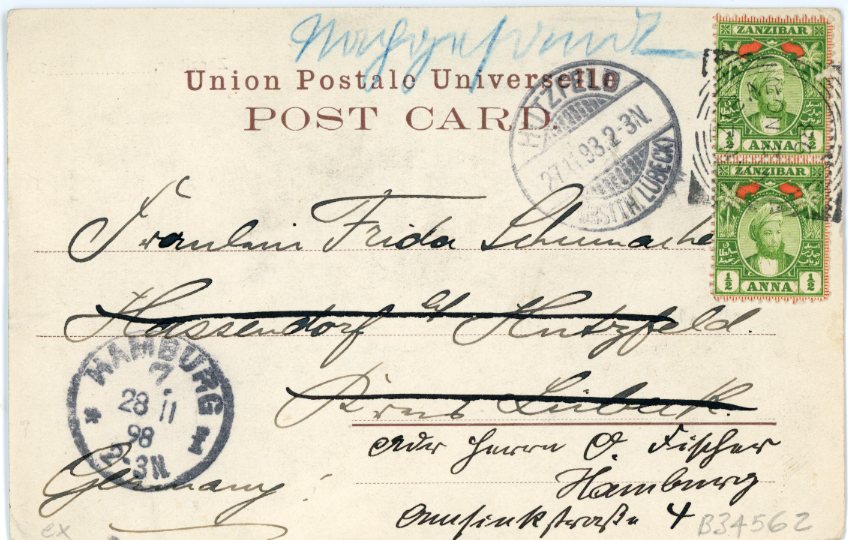 Nachgesandt
Union Postale Universelle
POST CARD.
ZANZIBAR
½ ANNA ½
ZANZIBAR
½ ANNA ½
HUTZFELD
27.11.98.2-3N.
(FSTTH. LÜBECK)
Fräulein Frida Schumacher
Hassendorf b/ Hutzfeld.
Kreis Lübeck.
HAMBURG
7.
28 11
98
2-3N
* 1
Adr Herrn O. Fischer
Hamburg
Amsinkstraße 4
Germany!
ex
B34562